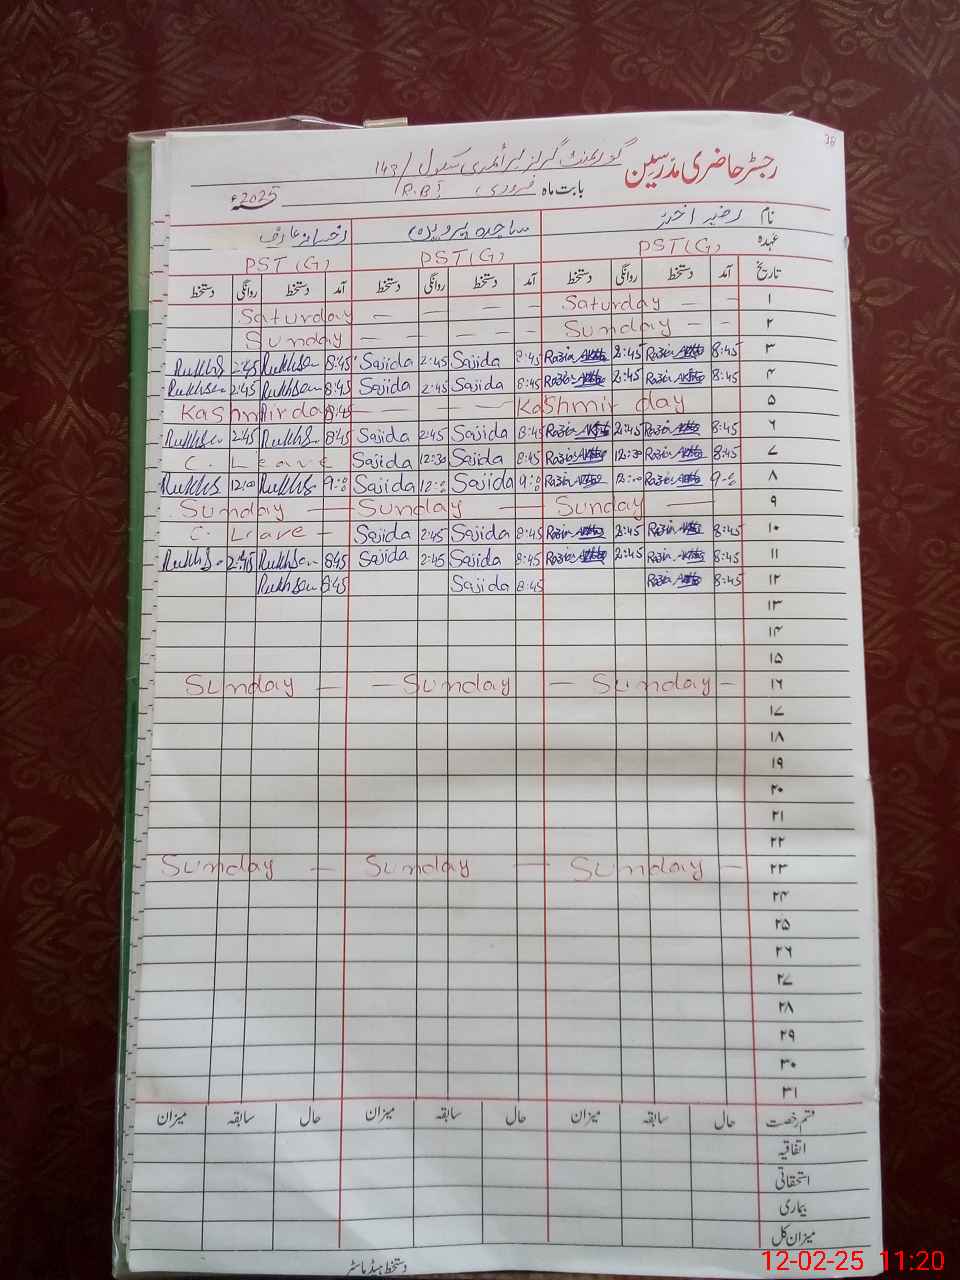 38
رجسٹر حاضری مدرسین گورنمنٹ گرلز پرائمری سکول 143/
بابت ماہ فروری R.B 2025ء
نام رضیہ اختر ساجدہ پروین
عہدہ PST(G) PST(G) PST(G)
تاریخ آمد دستخط روانگی دستخط آمد دستخط روانگی دستخط آمد دستخط روانگی دستخط
۱ Saturday Saturday
۲ Sunday Sunday
۳ 8:45 Razia 2:45 Razia 8:45 Sajida 2:45 Sajida 8:45 Rukhsen 2:45 Rukhs
۴ 8:45 Razia 2:45 Razia 8:45 Sajida 2:45 Sajida 8:45 Rukhsen 2:45 Rukhsen
۵ Kashmir day Kashmir day 8:45
۶ 8:45 Razia 2:45 Razia 8:45 Sajida 2:45 Sajida 8:45 Rukhs 2:45 Rukhsen
۷ 8:45 Razia 12:30 Razia 8:45 Sajida 12:30 Sajida C. Leave
۸ 9:00 Razia 12:00 Razia 9:00 Sajida 12:00 Sajida 9:00 Rukhs 12:00 Rukhs
۹ Sunday Sunday Sunday
۱۰ 8:45 Razia 2:45 Razia 8:45 Sajida 2:45 Sajida C. Leave
۱۱ 8:45 Razia 2:45 Razia 8:45 Sajida 2:45 Sajida 8:45 Rukhsen 2:45 Rukhs
۱۲ 8:45 Razia 8:45 Sajida 8:45 Rukhsen
۱۳
۱۴
۱۵
۱۶ Sunday Sunday Sunday
۱۷
۱۸
۱۹
۲۰
۲۱
۲۲
۲۳ Sunday Sunday Sunday
۲۴
۲۵
۲۶
۲۷
۲۸
۲۹
۳۰
۳۱
قسم رخصت حال سابقہ میزان حال سابقہ میزان حال سابقہ میزان
اتفاقیہ
استحقاقی
بیماری
میزان کل
دستخط ہیڈ ماسٹر
12-02-25 11:20